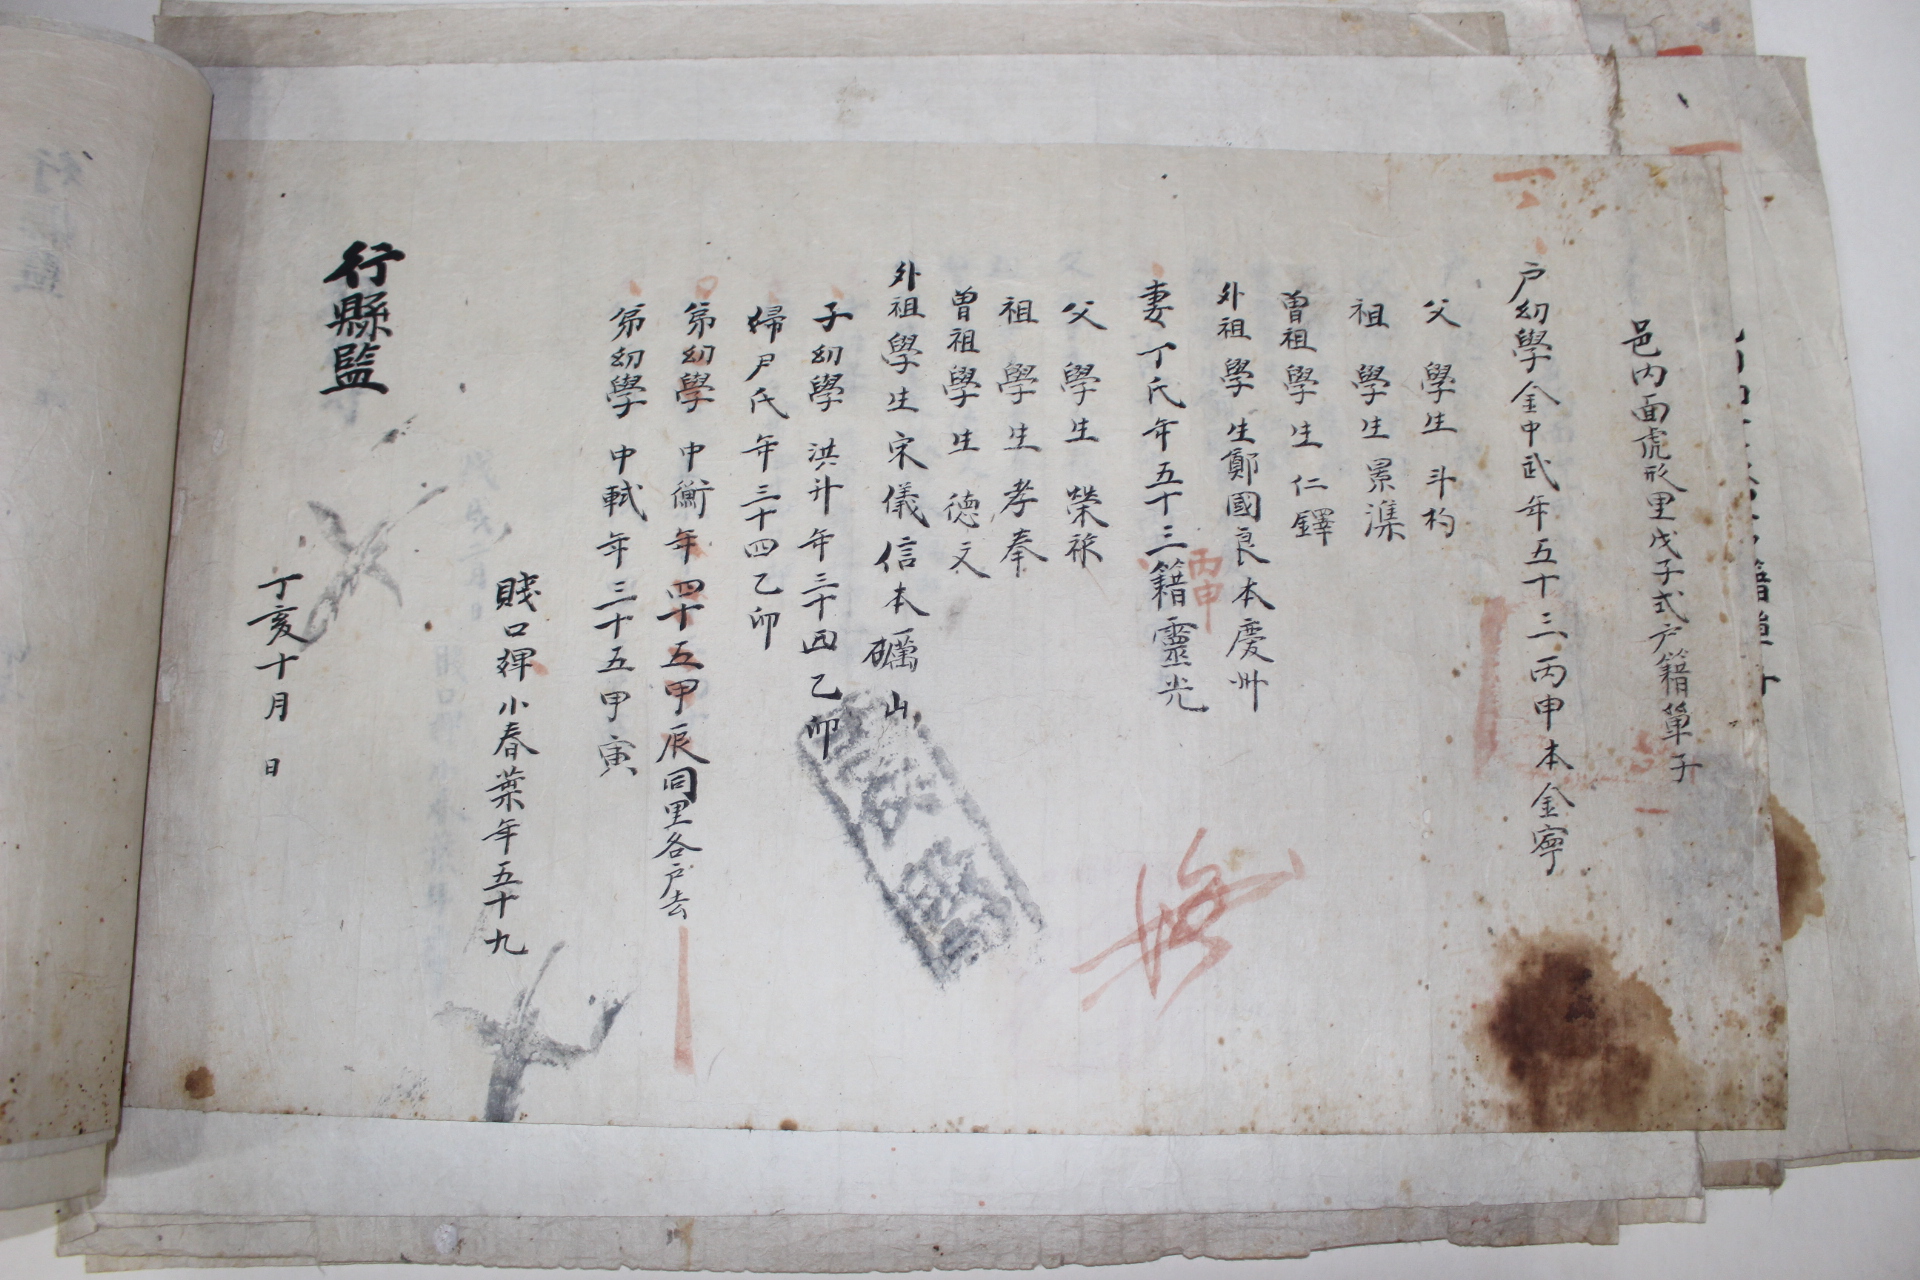 邑內面虎形里戊子式户籍單子
户幼學金中武年五十三丙申本金寧
父 學生 斗杓
祖 學生 景濈
曾祖 學生 仁鐸
外祖 學生鄭國良本慶州
妻丁氏年五十三籍靈光
丙申
父 學生 榮祿
祖 學生 孝奉
曾祖學生 德文
外祖學生宋儀信本礪山
子幼學 洪升年三十四乙卯
婦尹氏年三十四乙卯
弟幼學 中衡年四十五甲辰同里各户去
弟幼學 中軾年三十五甲寅
賤口婢小春葉年五十九
行縣監
丁亥十月 日